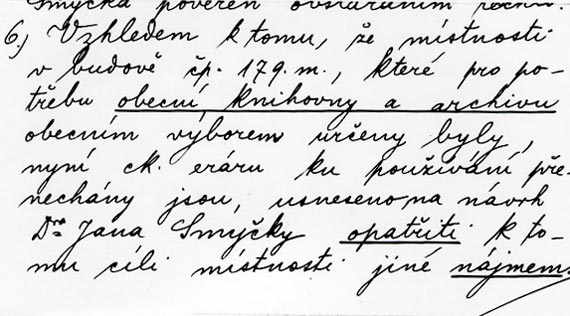 Smyčka pověřen obstaráním
6.) Vzhledem k tomu, že místnosti
v budově čp. 179. m., které pro po-
třebu obecní knihovny a archivu
obecním výborem určeny byly,
nyní ck. eráru ku používání pře-
nechány jsou, usneseno na návrh
Dra Jana Smyčky opatřiti k to-
mu cíli místnosti jiné nájmem.